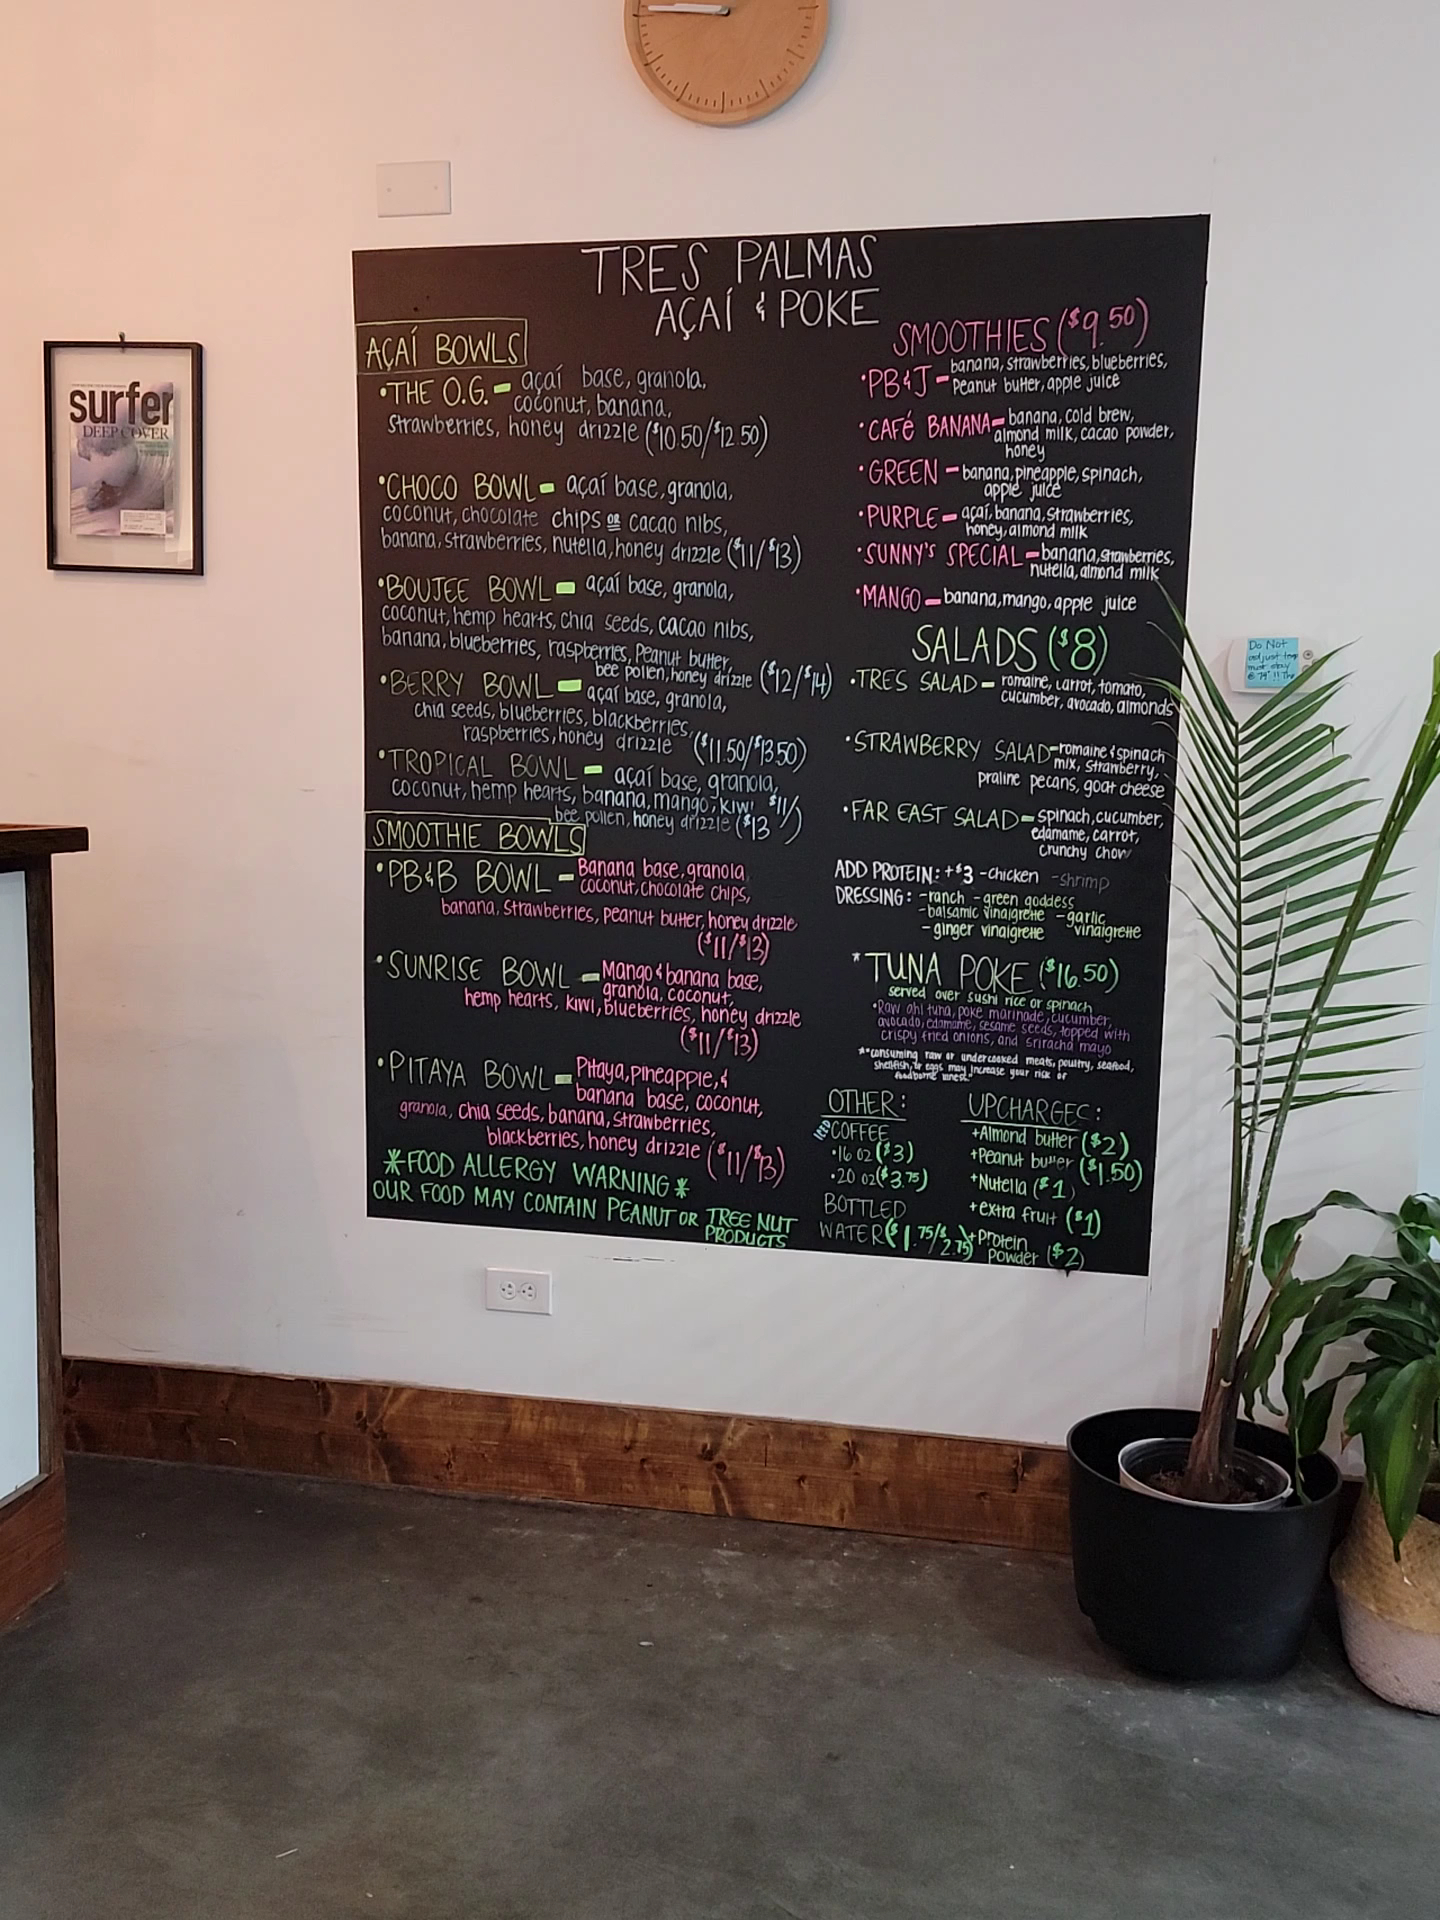 TRES PALMAS
AÇAÍ & POKE
AÇAÍ BOWLS
•THE O.G. - açaí base, granola,
coconut, banana,
strawberries, honey drizzle ($10.50/$12.50)
•CHOCO BOWL - açaí base, granola,
coconut, chocolate chips OR cacao nibs,
banana, strawberries, nutella, honey drizzle ($11/$13)
•BOUJEE BOWL - açaí base, granola,
coconut, hemp hearts, chia seeds, cacao nibs,
banana, blueberries, raspberries, Peanut butter,
bee pollen, honey drizzle ($12/$14)
•BERRY BOWL - açaí base, granola,
chia seeds, blueberries, blackberries,
raspberries, honey drizzle ($11.50/$13.50)
•TROPICAL BOWL - açaí base, granola,
coconut, hemp hearts, banana, mango, kiwi,
bee pollen, honey drizzle ($11/$13)
SMOOTHIE BOWLS
•PB&B BOWL - Banana base, granola
coconut, chocolate chips,
banana, strawberries, peanut butter, honey drizzle
($11/$13)
•SUNRISE BOWL - Mango & banana base,
granola, coconut,
hemp hearts, kiwi, blueberries, honey drizzle
($11/$13)
•PITAYA BOWL - Pitaya, pineapple, &
banana base, coconut,
granola, chia seeds, banana, strawberries,
blackberries, honey drizzle ($11/$13)
*FOOD ALLERGY WARNING*
OUR FOOD MAY CONTAIN PEANUT OR TREE NUT
PRODUCTS
SMOOTHIES ($9.50)
•PB&J - banana, strawberries, blueberries,
Peanut butter, apple juice
•CAFÉ BANANA - banana, cold brew,
almond milk, cacao powder,
honey
•GREEN - banana, pineapple, spinach,
apple juice
•PURPLE - açaí, banana, strawberries,
honey, almond milk
•SUNNY'S SPECIAL - banana, strawberries,
nutella, almond milk
•MANGO - banana, mango, apple juice
SALADS ($8)
•TRES SALAD - romaine, carrot, tomato,
cucumber, avocado, almonds
•STRAWBERRY SALAD - romaine & spinach
mix, strawberry,
praline pecans, goat cheese
•FAR EAST SALAD - spinach, cucumber,
edamame, carrot,
crunchy chow
ADD PROTEIN: +$3 -chicken -shrimp
DRESSING: -ranch -green goddess
-balsamic vinaigrette -garlic vinaigrette
-ginger vinaigrette
*TUNA POKE ($16.50)
served over sushi rice or spinach
•Raw ahi tuna, poke marinade, cucumber,
avocado, edamame, sesame seeds, topped with
crispy fried onions, and sriracha mayo
**consuming raw or undercooked meats, poultry, seafood,
shellfish, or eggs may increase your risk of
foodborne
OTHER:
ICED COFFEE
•16 oz ($3)
•20 oz ($3.75)
BOTTLED
WATER ($1.75/$2.75)
UPCHARGES:
+Almond butter ($2)
+Peanut butter ($1.50)
+Nutella ($1)
+extra fruit ($1)
+Protein
powder ($2)
surfer
DEEP COVER
Do Not
adjust temp
must stay
@ 74° !!